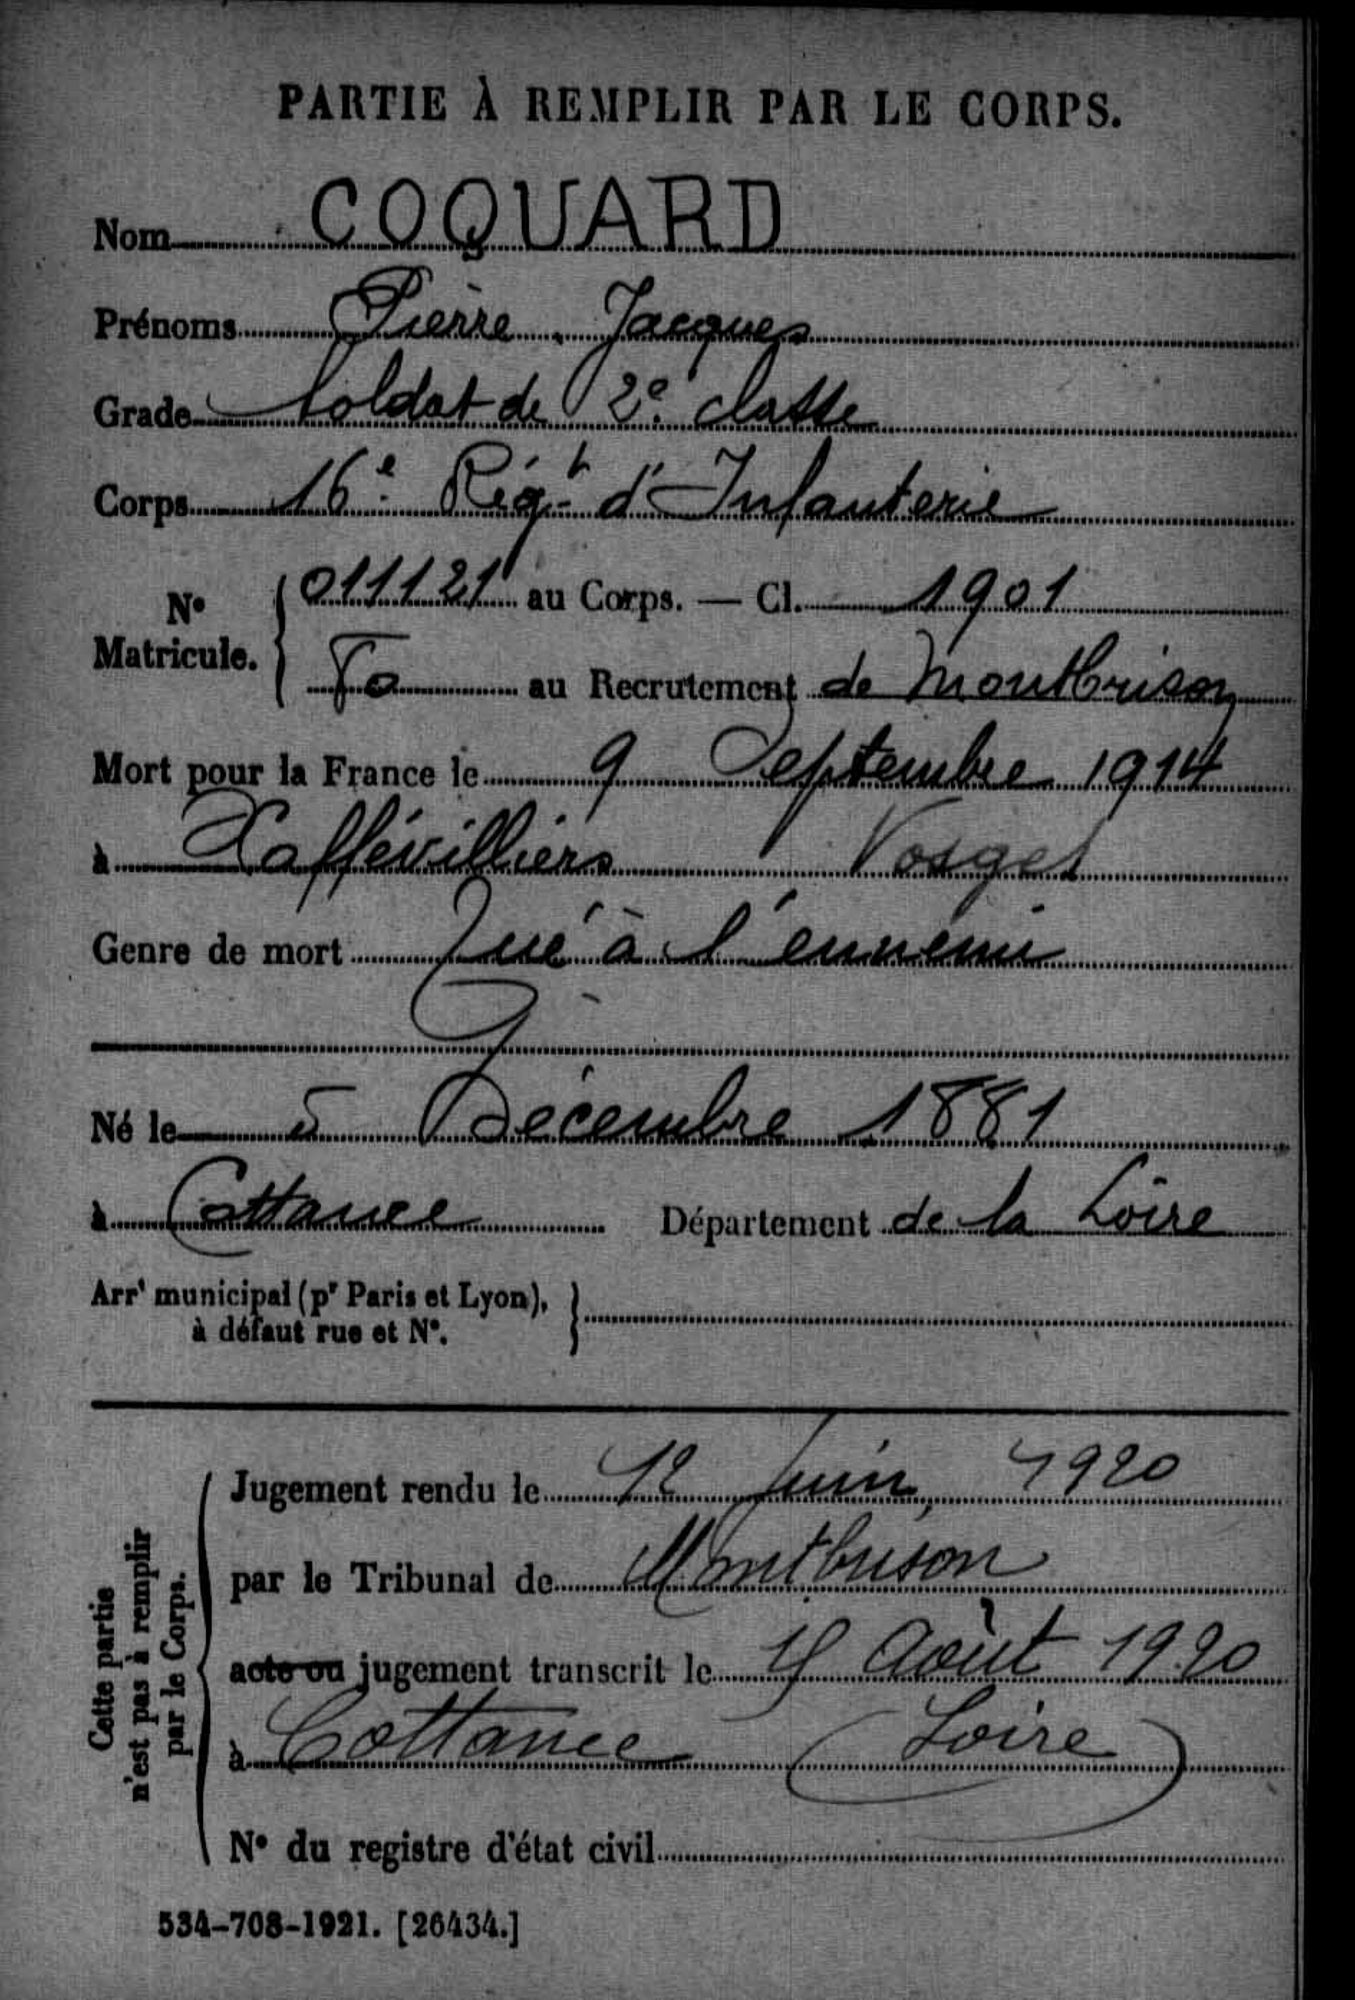 PARTIE À REMPLIR PAR LE CORPS.
Nom COQUARD
Prénoms Pierre Jacques
Grade Soldat de 2e classe
Corps 16e Régt d'Infanterie
No Matricule. 011121 au Corps. — Cl. 1901
au Recrutement de Montbrison
Mort pour la France le 9 Septembre 1914
à Xaffévilliers Vosges
Genre de mort Tué à l'ennemi
Né le 5 Décembre 1881
à Cottance Département de la Loire
Arrt municipal (pr Paris et Lyon),
à défaut rue et No.
Cette partie
n'est pas à remplir
par le Corps.
Jugement rendu le 12 Juin, 1920
par le Tribunal de Montbrison
acte ou jugement transcrit le Août 1920
à Cottance (Loire)
No du registre d'état civil
534-708-1921. [26434.]